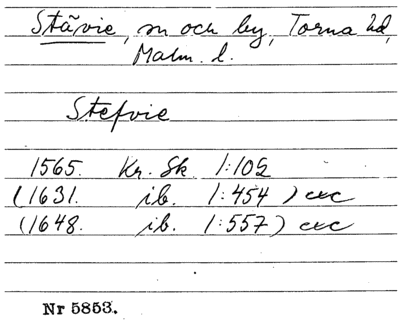 Stävie, sn och by, Torna hd,
Malm. l.
Stefvie
1565. Kr. Sk. 1:102
(1631. ib. 1:454) etc
(1648. ib. 1:557) etc
Nr 5853.